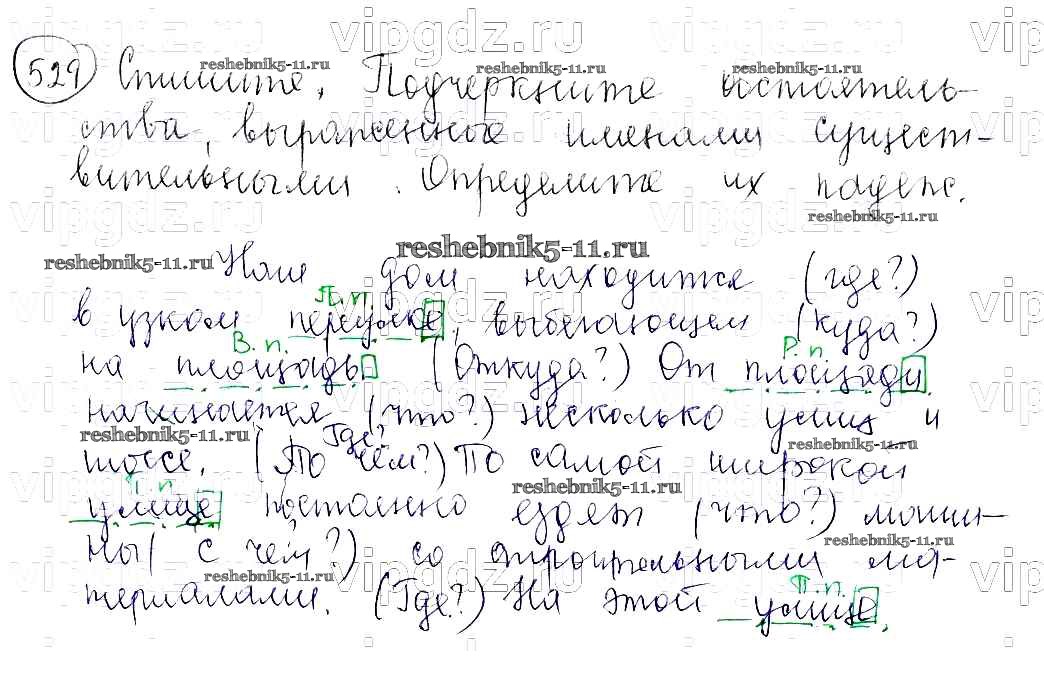 529 Спишите, Подчеркните обстоятель-
ства, выраженные именами сущест-
вительными. Определите их падеж.
reshebnik5-11.ru
Наш дом находится (где?)
П.п.
в узком переулке, выбегающем (куда?)
В.п. Р.п.
на площадь (Откуда?) От площади
начинается (что?) несколько улиц и
Где?
шоссе. (По чём?) По самой широкой
улице постоянно ездят (что?) маши-
ны (с чем?) со строительными ма-
П.п.
териалами. (Где?) На этой улице
vipgdz.ru